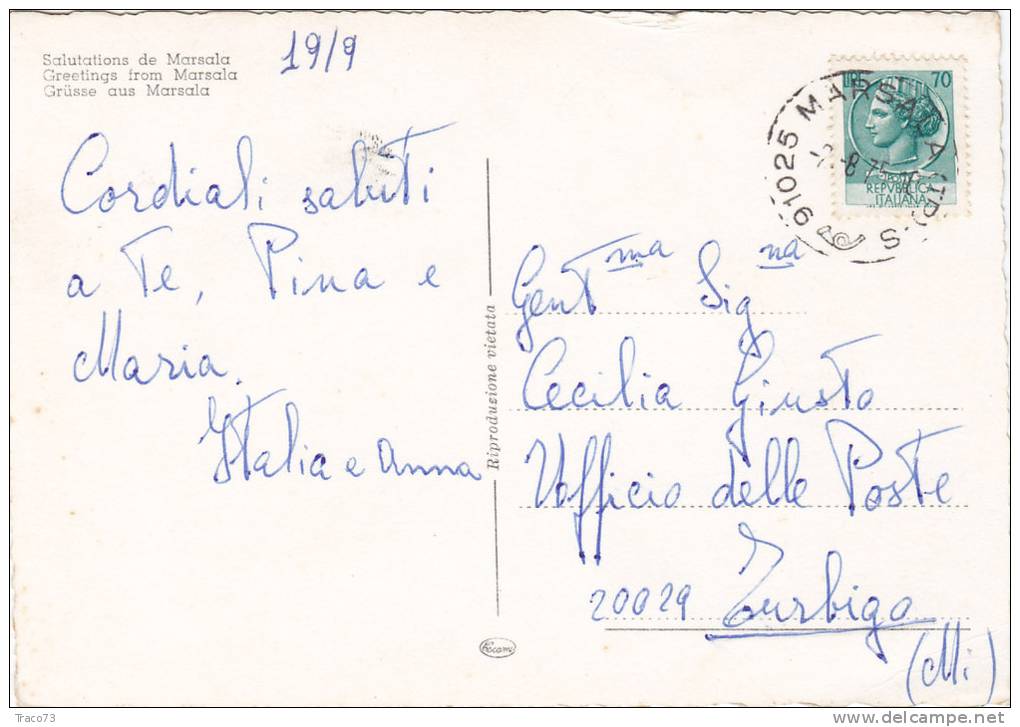 Salutations de Marsala
Greetings from Marsala
Grüsse aus Marsala
19/9
Cordiali saluti
a Te, Pina e
Maria.
Italia e Anna
Riproduzione vietata
LIRE 70
REPVBBLICA
ITALIANA
91025 MARSALA (TP) S
Gent ma Sig na
Cecilia Giusto
Vofficio delle Poste
20029 Turbigo
(Mi)
Traco73
delcampe.net